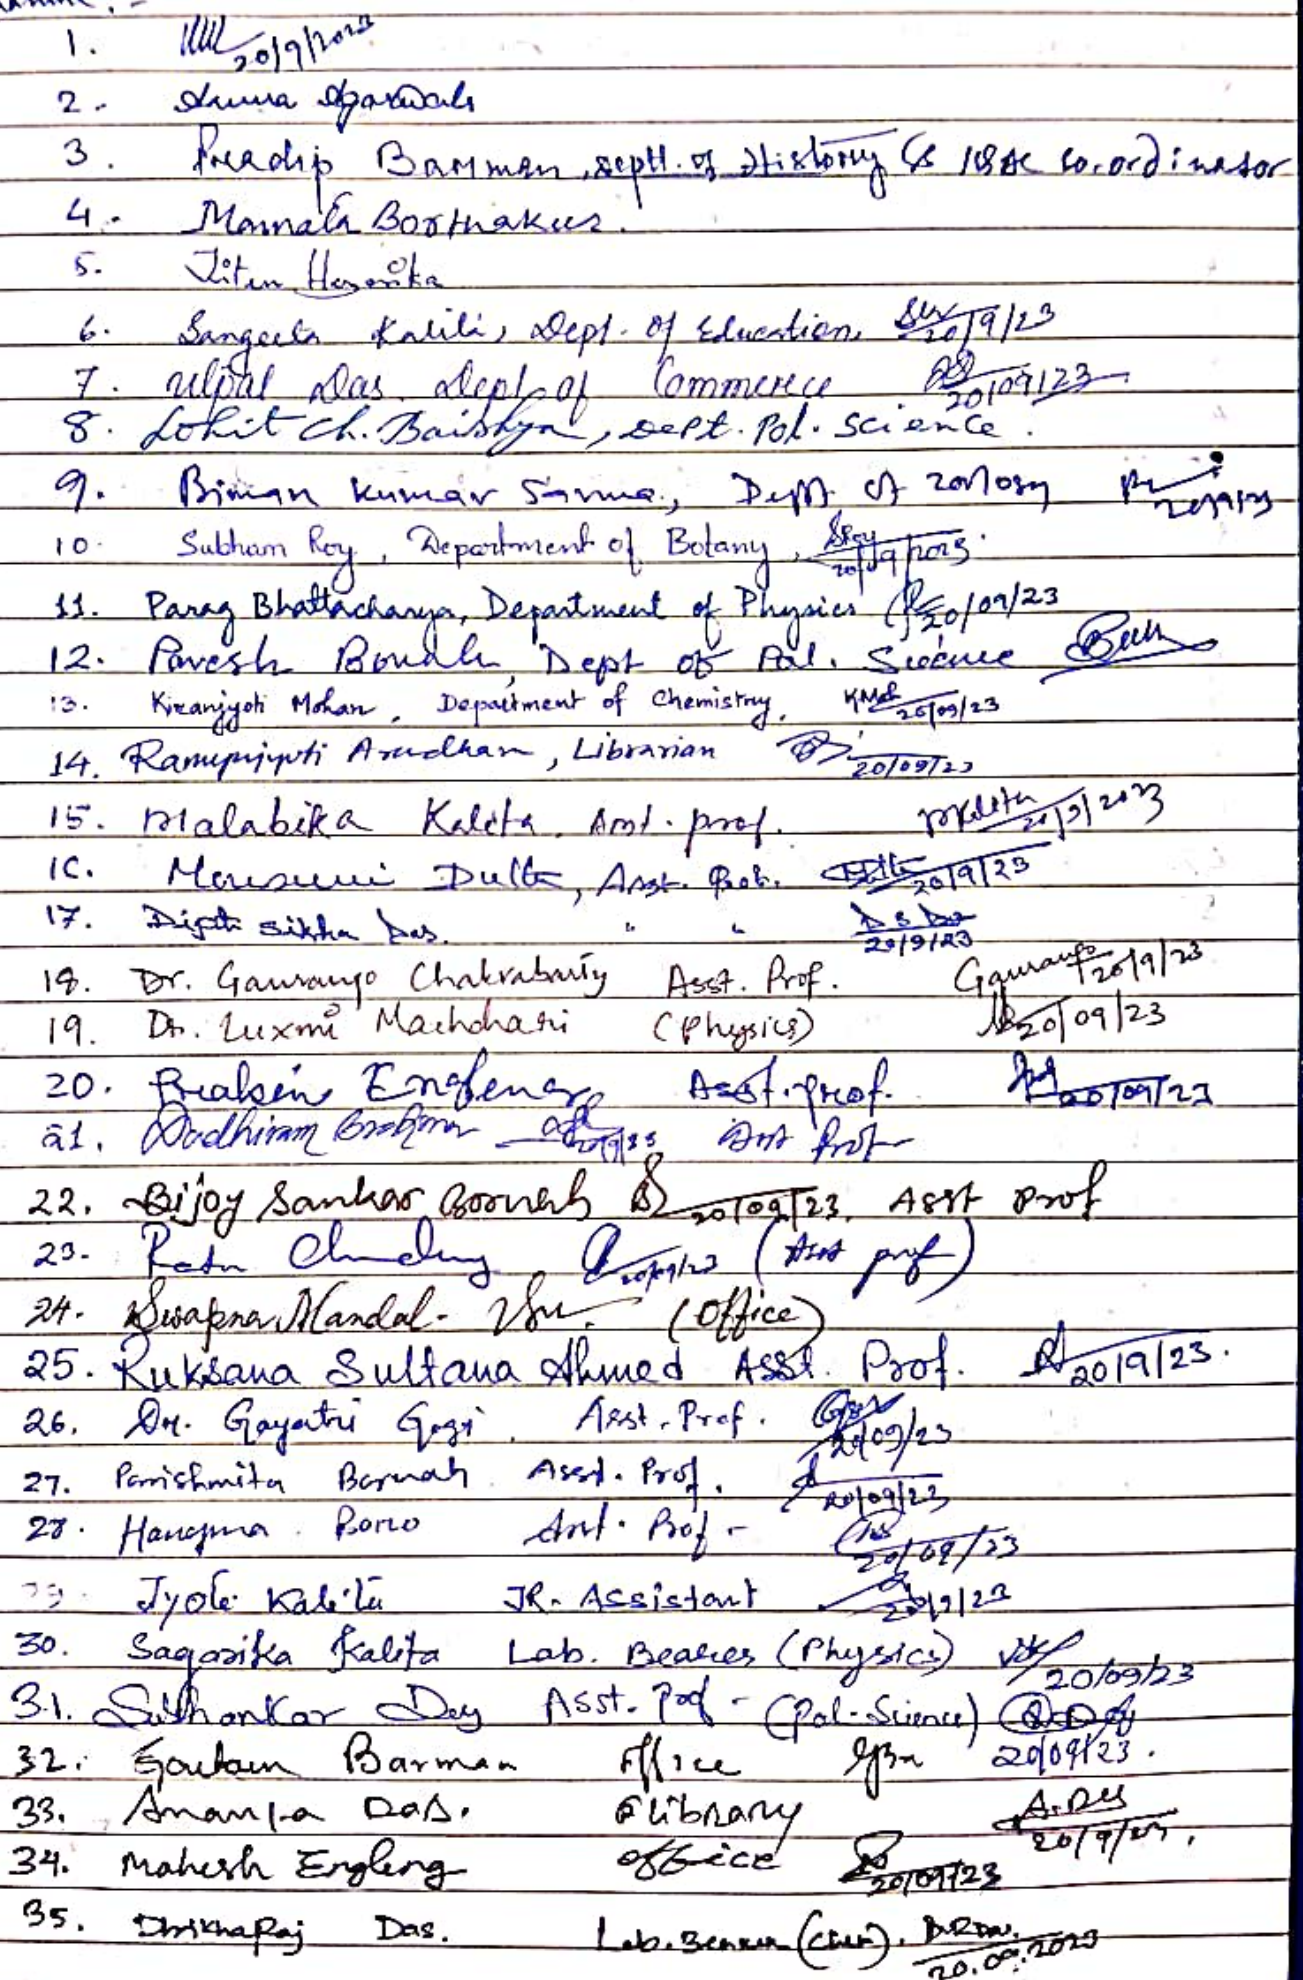 1. 20/9/2023
2. Agarwala
3. Pradip Barman, Deptt. of History & IQAC Co-ordinator
4. Borthakur.
5. Jiten Hazarika
6. Sangeeta Kalita, Dept. of Education, 20/9/23
7. Utpal Das Dept of Commerce 20/09/23
8. Lohit Ch. Baishya, Dept. Pol. Science.
9. Biman Kumar Sarma, Deptt of Zoology 20/9/23
10. Subham Roy, Department of Botany, SRoy 20/09/2023.
11. Parag Bhattacharya, Department of Physics 20/09/23
12. Paresh Boruah, Dept of Pol. Science
13. Kiranjyoti Mohan, Department of Chemistry, 20/09/23
14. Librarian 20/09/23
15. Malabika Kalita. Asst. prof. MKalita 20/9/2023
16. Mousumi Dutta, Asst. Prof. 20/9/23
17. Sikha Das. " " D S Das 20/9/23
18. Dr. Gaurango Chakrabarty Asst. Prof. Gaurango 20/9/23
19. Dr. Luxmi Machahari (Physics) 20/09/23
20. Asst. prof. 20/09/23
21. Dadhiram 20/9/23 Asst Prof
22. Bijoy Sankar Boruah 20/09/23. Asst Prof
23. 20/09/23 (Asst prof)
24. Swapna Mandal - (Office)
25. Ruksana Sultana Ahmed Asst. Prof. 20/9/23.
26. Dr. Gayatri Gogoi, Asst. Prof. 20/09/23
27. Parishmita Baruah Asst. Prof. 20/09/23
28. Boro Asst. Prof - 20/09/23
29. Jyoti Kalita JR. Assistant 20/9/23
30. Sagarika Kalita Lab. Bearer (Physics) 20/09/23
31. Subhankar Dey Asst. Prof - (Pol-Science)
32. Goutam Barman Office 20/09/23.
33. Ananta Das. library A. Das 20/9/23.
34. Mahesh Engleng office 20/09/23
35. Das. Lab. Bearer (Chem). 20.09.2023